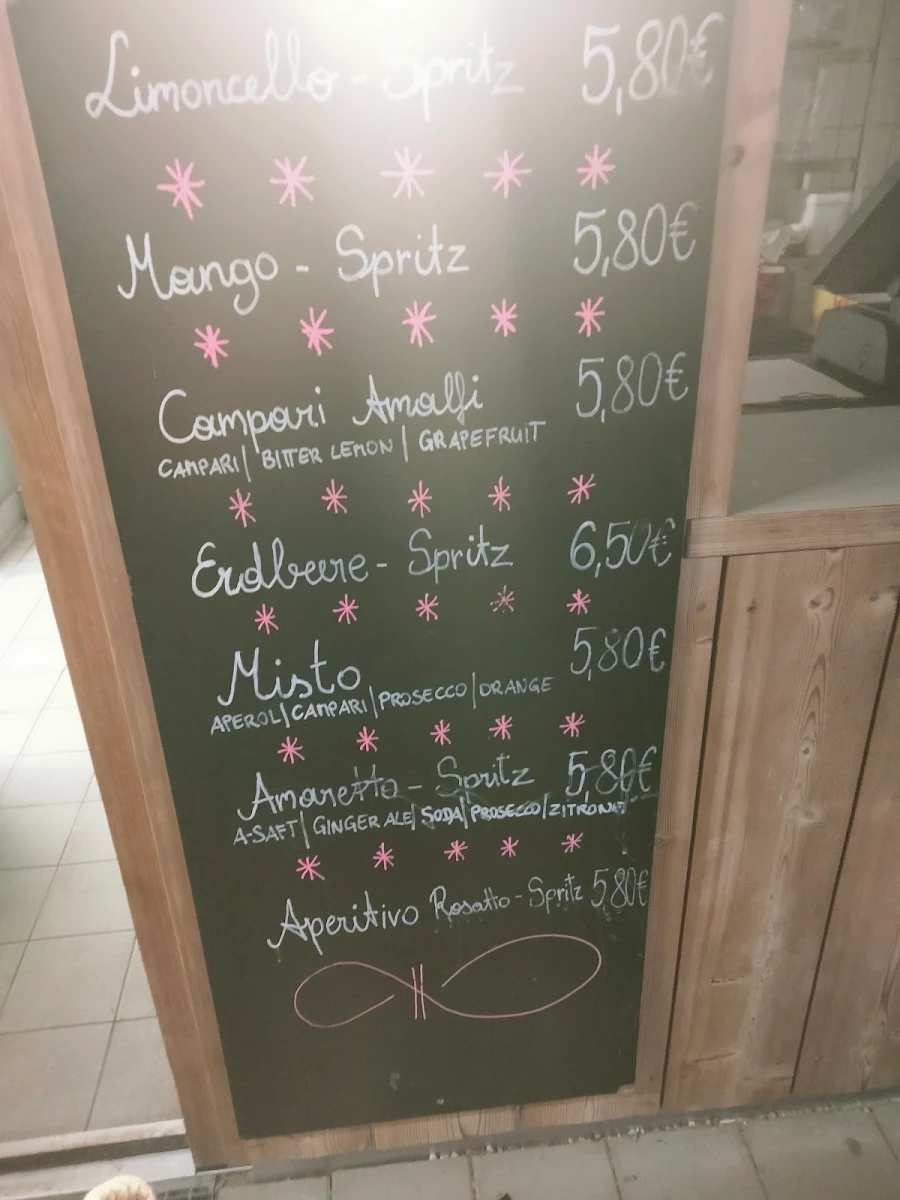 Limoncello - Spritz 5,80€
Mango - Spritz 5,80€
Campari Amalfi 5,80€
CAMPARI | BITTER LEMON | GRAPEFRUIT
Erdbeere - Spritz 6,50€
Misto 5,80€
APEROL | CAMPARI | PROSECCO | ORANGE
Amaretto - Spritz 5,80€
A-SAFT | GINGER ALE | SODA | PROSECCO | ZITRONE
Aperitivo Rosatto - Spritz 5,80€